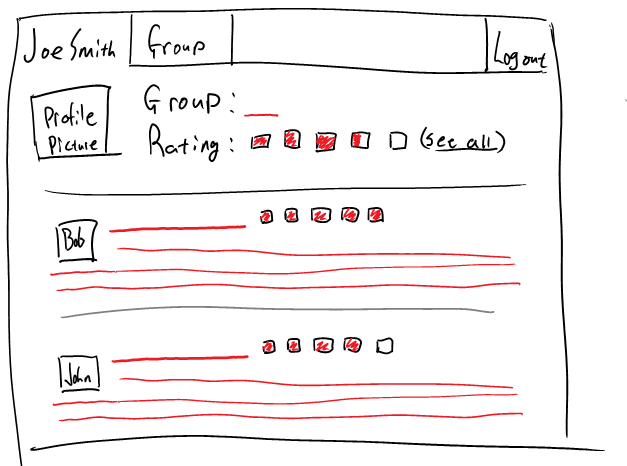 Joe Smith Group Log out
Profile Picture
Group:
Rating: (see all)
Bob
John